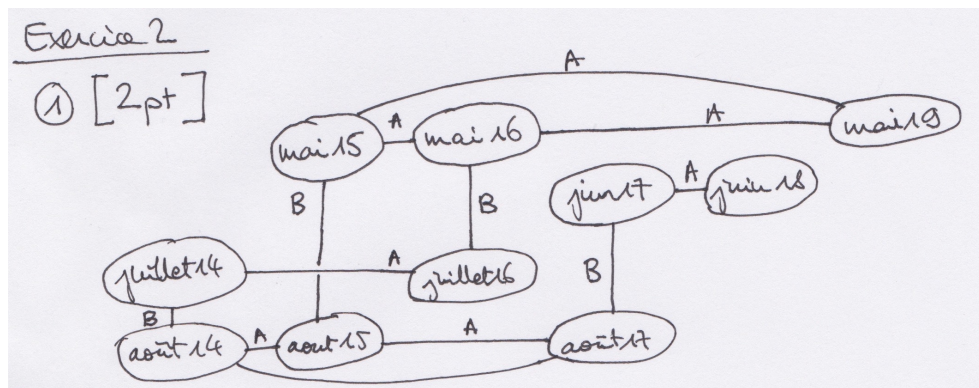 Exercice 2
① [2pt]
A
mai 15 A mai 16 A mai 19
juin 17 A juin 18
B B
juillet 14 A juillet 16 B
B
août 14 A aout 15 A août 17